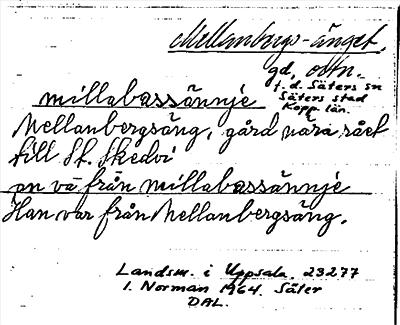 Mellanbergs-änget,
gd, odtn.
f.d. Säters sn
Säters stad
Kopp. län.
millabassännje
Mellanbergsäng, gård nära rået
till St. Skedvi
an va från millabassännje
Han var från Mellanbergsäng.
Landsm. i Uppsala. 23277
I. Norman 1964. Säter
DAL.